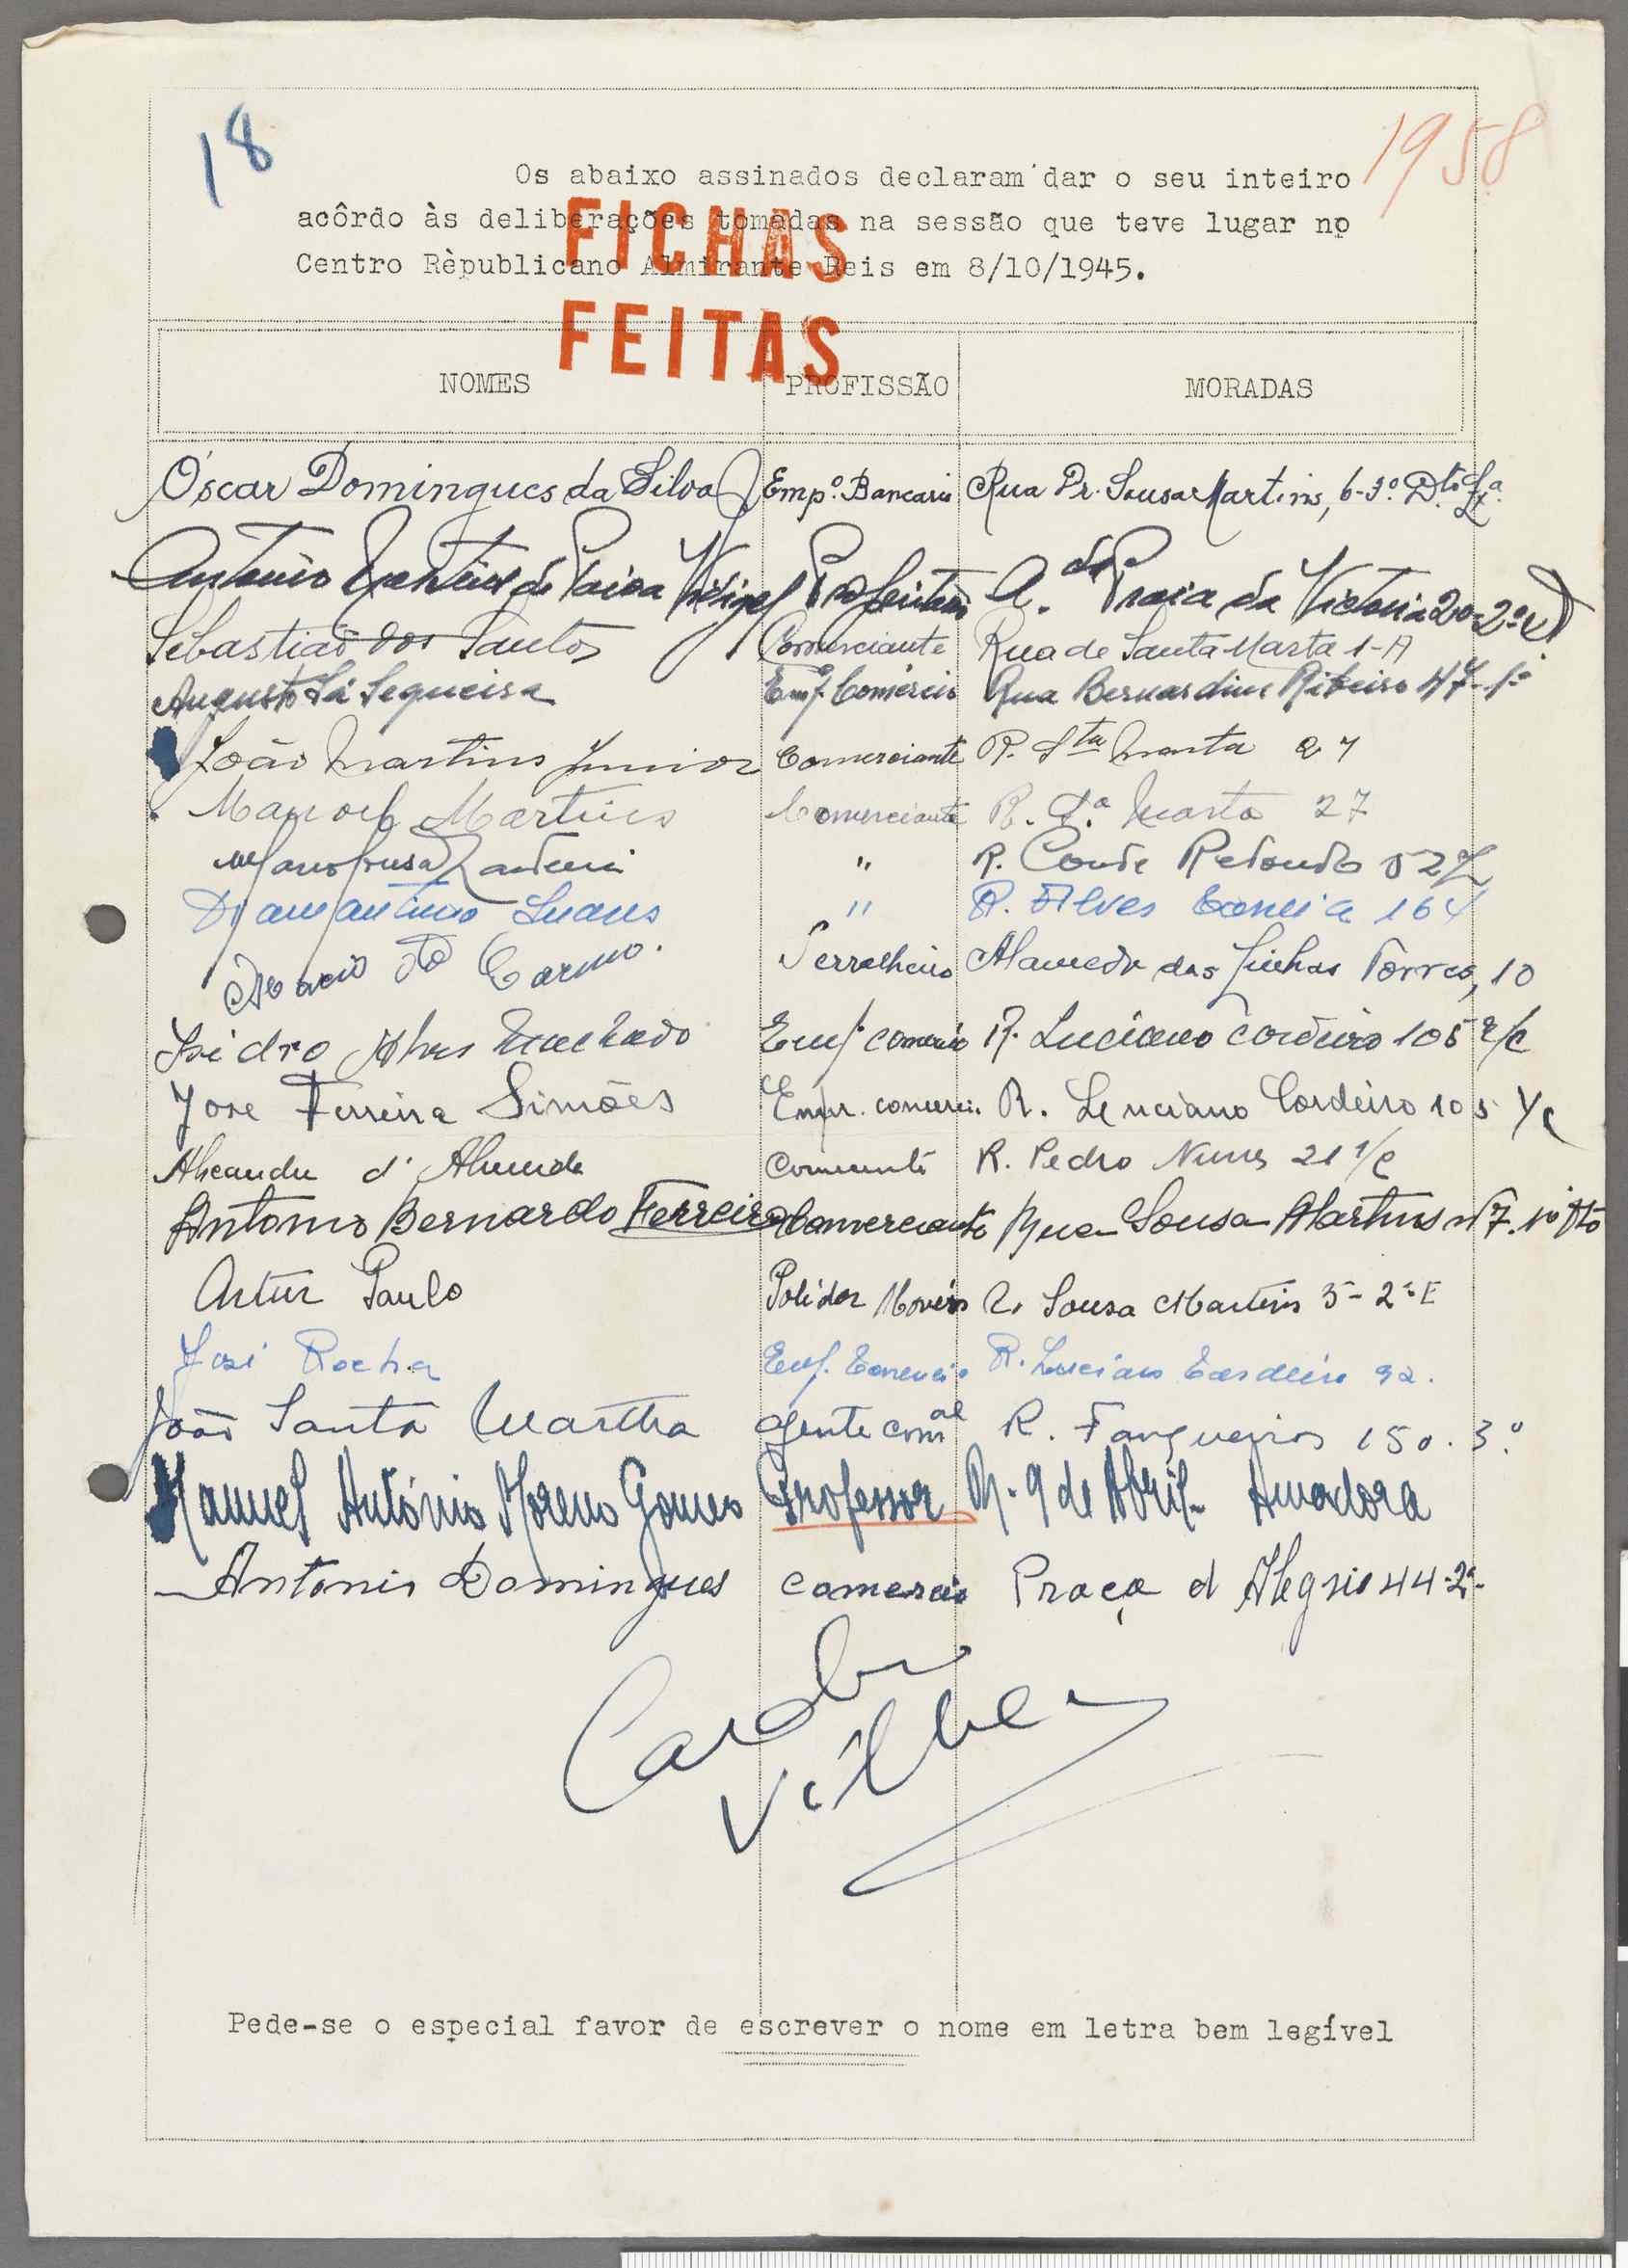 18
1958
Os abaixo assinados declaram dar o seu inteiro
acôrdo às deliberações tomadas na sessão que teve lugar no
Centro Rèpublicano Almirante Reis em 8/10/1945.
FICHAS
FEITAS
NOMES PROFISSÃO MORADAS
Óscar Domingues da Silva Empº. Bancario Rua Dr. Sousa Martins, 6-3º. Dto. Lxa.
António de Paiva A. da Praia da Victoria 20-2º
Sebastião dos Santos Comerciante Rua de Santa Marta 1-A
Augusto Sá Sequeira Emp. Comércio Rua Bernardim Ribeiro 47-1º
João Martins Junior Comerciante R. Sta Marta 27
Manoel Martins Comerciante R. Sta Marta 27
" R. Conde Redondo 52
Diamantino " R. Alves Correia 164
do Carmo. Serralheiro Alameda das Linhas Torres, 10
Isidro Machado Emp. comercio R. Luciano Cordeiro 105 r/c
Jose Ferreira Simões Empr. comercio. R. Luciano Cordeiro 105 r/c
d'Almeida R. Pedro Nunes 21 r/c
Antonio Bernardo Ferreira Comerciante Rua Sousa Martins nº 7. 1º Dto
Artur Paulo Polidor Moveis R. Sousa Martins 5-2º E
José Rocha Emp. Comercio R. Luciano Cordeiro 92.
João Santa Martha Agente comal R. Fanqueiros 150. 3.º
Manuel António Moreno Gomes Professor R. 9 de Abril - Amadora
Antonio Domingues comercio Praça d Alegria 44-2º-
Pede-se o especial favor de escrever o nome em letra bem legível